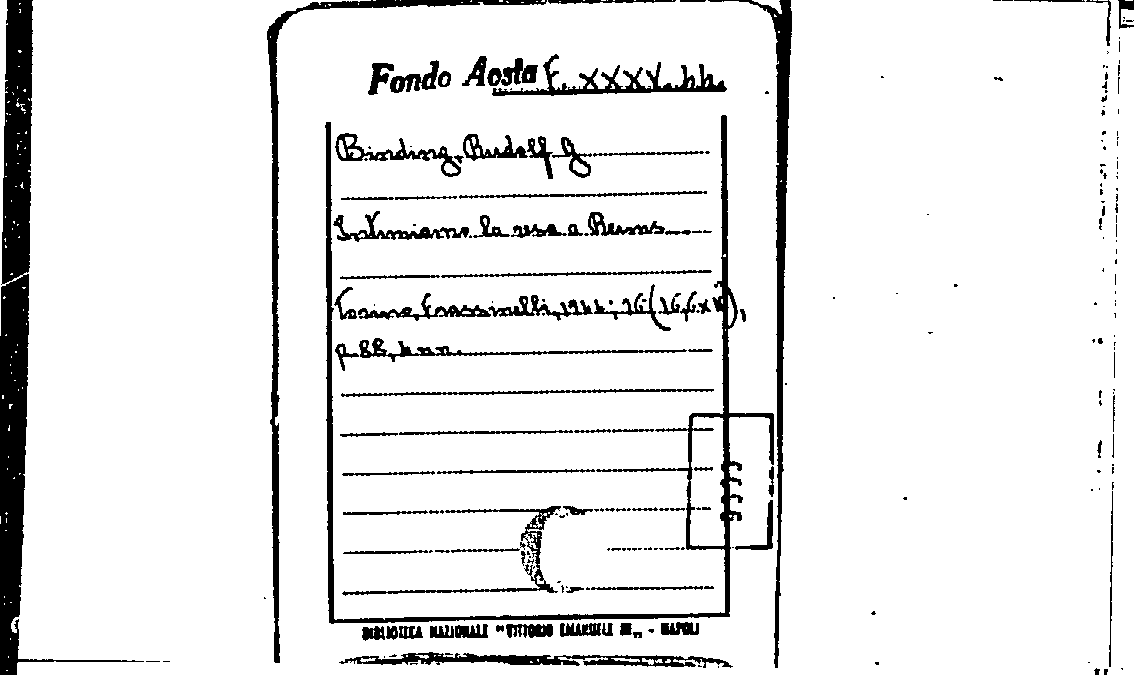 Fondo Aosta F. XXXV. hh.
Binding, Rudolf G
Intimiamo la resa a Reims
Torino, Frassinelli, 1944; 16 (16,6x
p. 88, 4 nn.
BIBLIOTECA NAZIONALE "VITTORIO EMANUELE III„ - NAPOLI